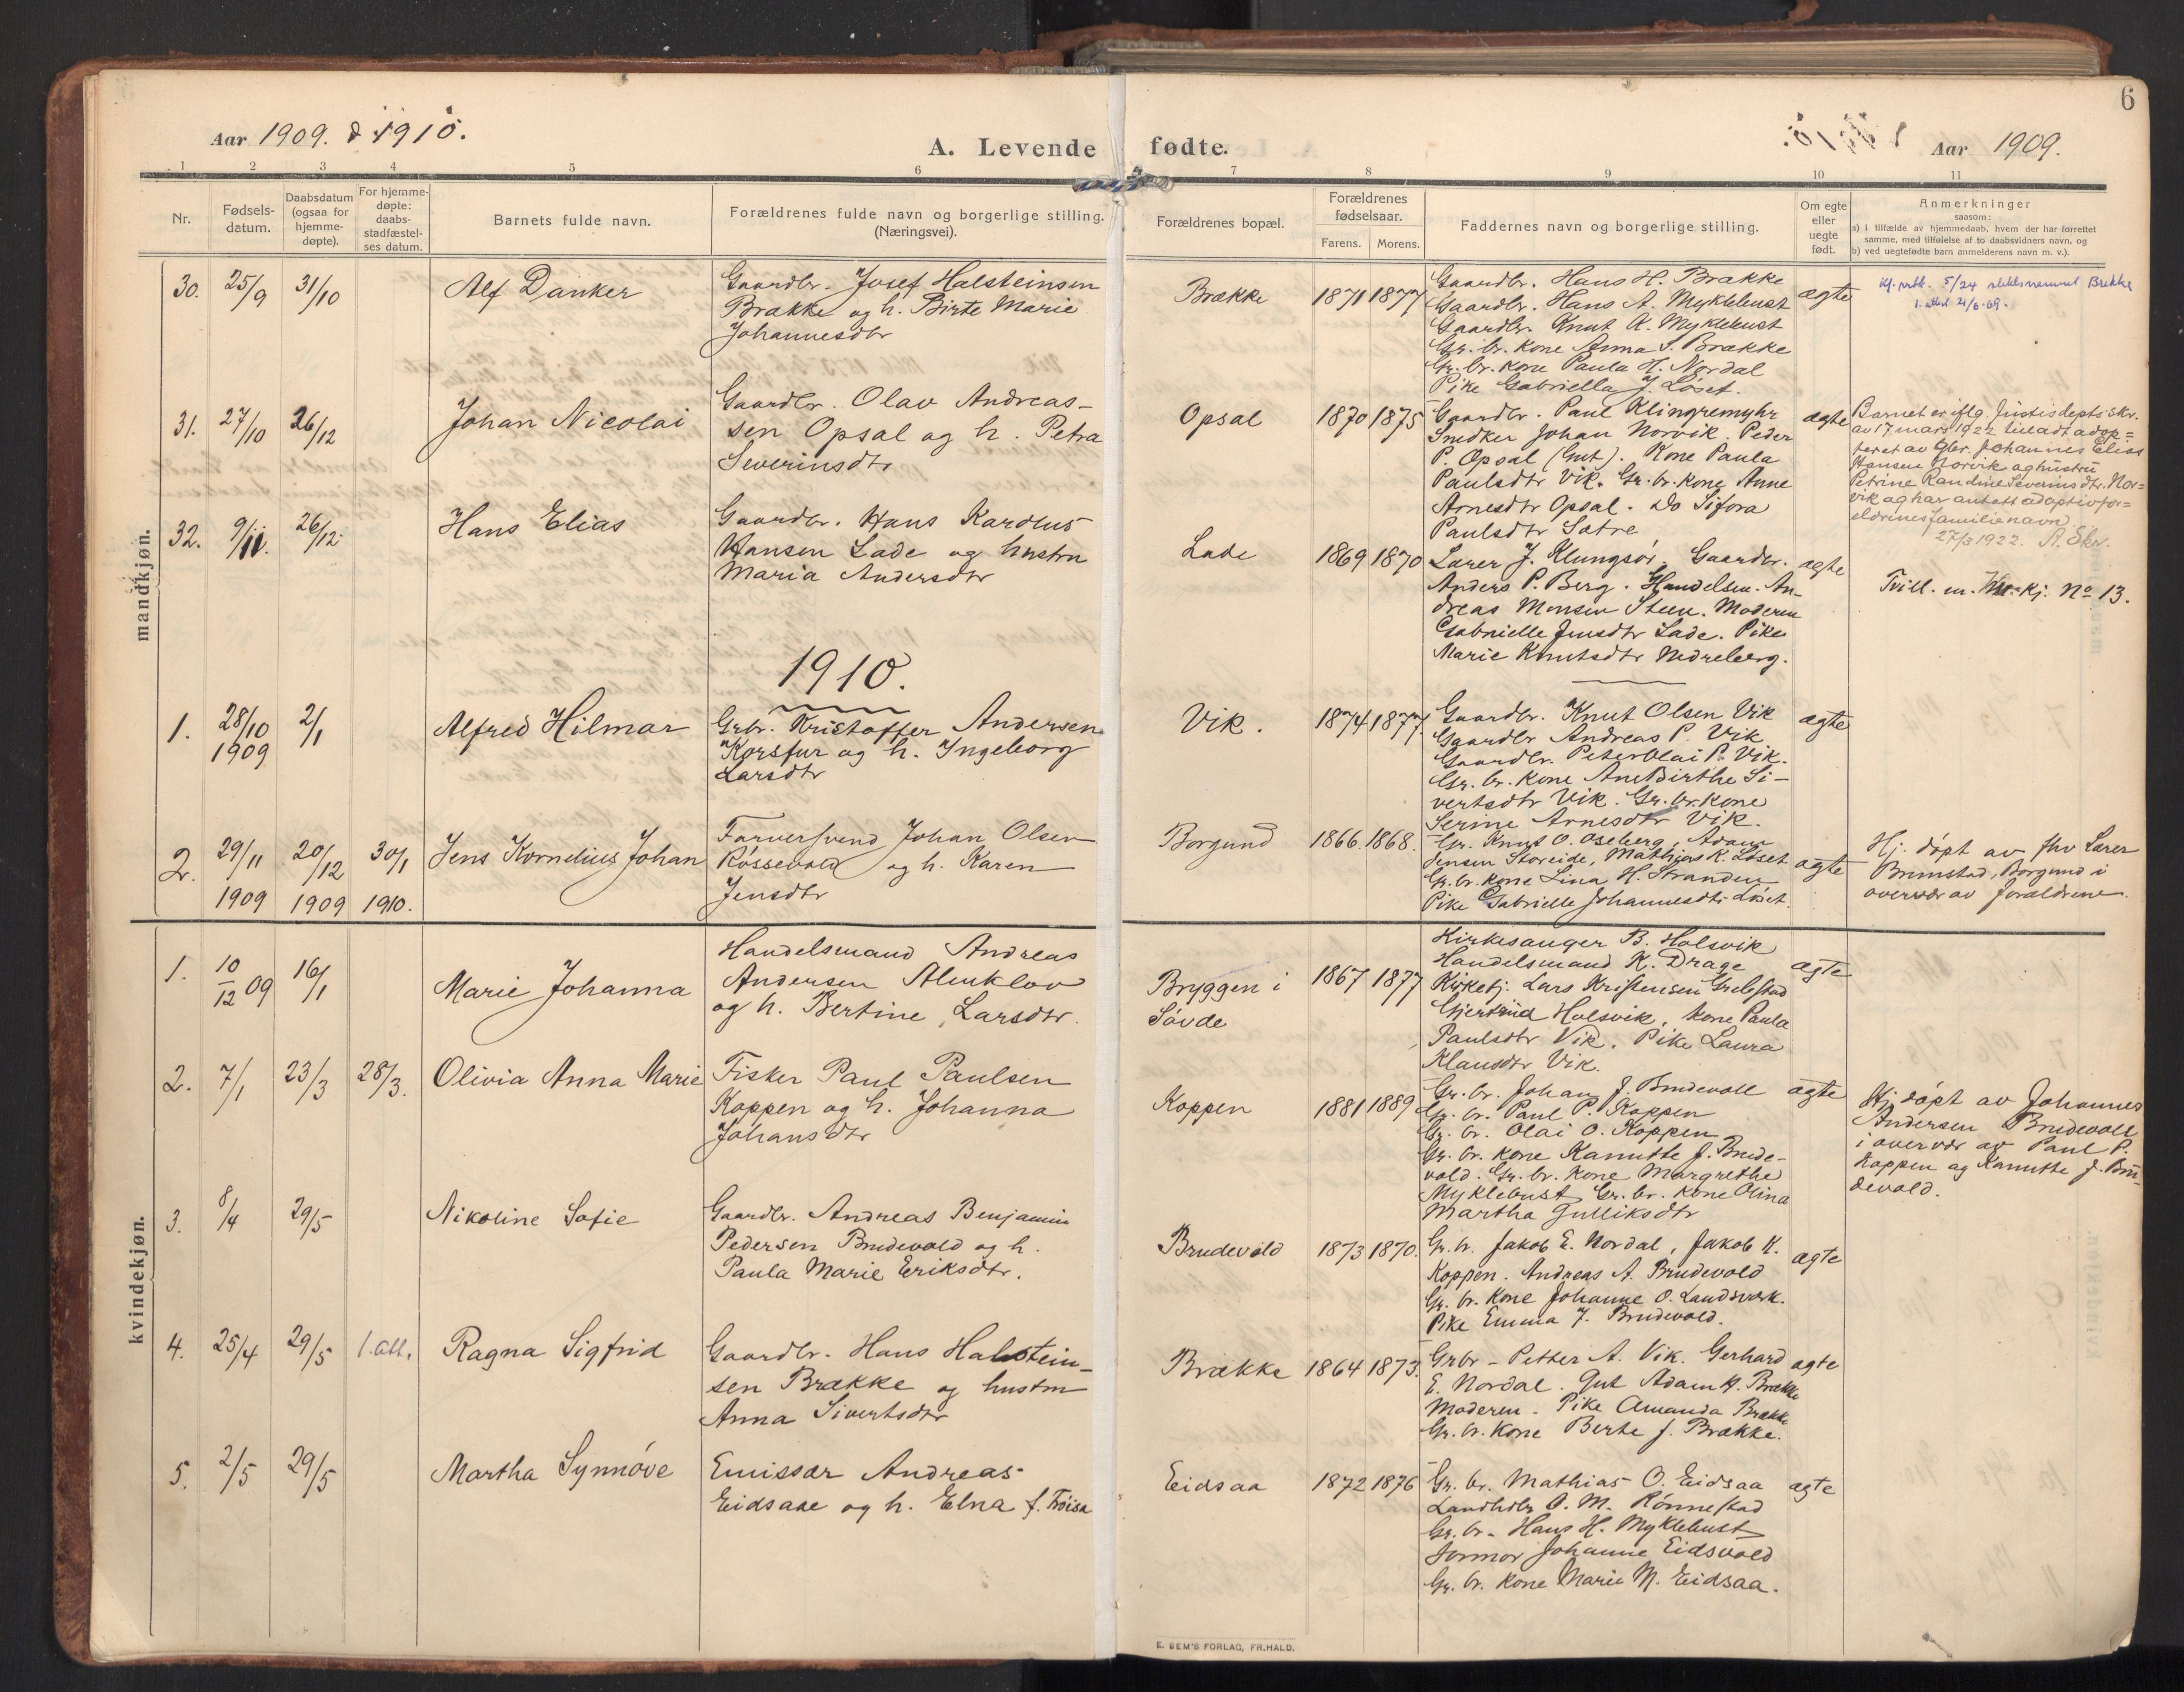 6
Aar 1909. & 1910.
A. Levende fødte.
Aar 1909.
1 2 3 4 5 6 7 8 9 10 11
Nr.
Fødsels-
datum.
Daabsdatum
(ogsaa for
hjemme-
døpte).
For hjemme-
døpte:
daabs-
stadfæstel-
ses datum.
Barnets fulde navn.
Forældrenes fulde navn og borgerlige stilling.
(Næringsvei).
Forældrenes bopæl.
Forældrenes
fødselsaar.
Farens. Morens.
Faddernes navn og borgerlige stilling.
Om egte
eller
uegte
født.
Anmerkninger
saasom:
a) i tilfælde av hjemmedaab, hvem der har forrettet
samme, med tilføielse af to daabsvidners navn, og
b) ved uegtefødte barn anmelderens navn m. v.).
mandkjøn.
30. 25/9 31/10
Alf Danker
Gaardbr. Josef Halsteinsen
Brække og h. Birte Marie
Johannesdtr
Brække
1871 1877
Gaardbr. Hans H. Brække
Gaardbr. Hans A. Myklebust
Gaardbr. Knut K. Myklebust
Gr. br. kone Anna S. Brække
Gr. br. kone Paula H. Nordal
Pike Gabriella J. Løset.
ægte
5/24 slektsnavnet Brekke
31. 27/10 26/12
Johan Nicolai
Gaardbr. Olav Andreas-
sen Opsal og h. Petra
Severinsdtr
Opsal
1870 1875
Gaardbr. Paul Klingremyhr
Snedker Johan Norvik. Peder
P. Opsal (Gut). Kone Paula
Paulsdtr Vik. Gr. br. kone Anne
Arnesdtr Opsal. Do Sifora
Paulsdtr Sætre
ægte
Barnet er iflg. Justisdepts skr.
av 17 mars 1922 tilladt adop=
teret av gbr. Johannes Elias
Hansen Norvik og hustru
Petrine Randine Severinsdtr. Nor=
vik og har antatt adoptivfor=
eldrenes familienavn
27/3 1922. A. Skr.
32. 9/11. 26/12.
Hans Elias
Gaardbr. Hans Karolus
Hansen Lade og hustru
Maria Andersdtr
Lade
1869 1870
Lærer J. Klungsør, Gaardbr.
Anders P. Berg. Handelsm. An-
dreas Monsen Steen. Moderen
Gabrielle Jensdtr Lade. Pike
Marie Knutsdtr Nedreberg.
ægte
Tvill. m. Kv. kj. No 13.
1910.
1. 28/10 2/1
1909
Alfred Hilmar
Grbr. Kristoffer Andersen
Korsfur og h. Ingeborg
Larsdtr
Vik.
1874 1877.
Gaardbr. Knut Olsen Vik
Gaardbr Andreas P. Vik
Gaardbr. Peter Olai P. Vik.
Gr. br. kone Ane Birthe Si-
vertsdtr Vik. Gr. br. kone
Serine Arnesdtr Vik.
ægte
2. 29/11 20/12 30/1
1909 1909 1910.
Jens Kornelius Johan
Farversvend Johan Olsen
Røssevold og h. Karen
Jensdtr
Borgund
1866 1868.
Gr. Knut O. Oseberg, Adam
Jensen Storeide, Mathias K. Løset
Gr. br. kone Lina H. Stranden
Pike Gabrielle Johannesdtr Løset.
ægte
Hj. døpt av fhv Lærer
Brimstad, Borgund i
overvær av forældrene.
kvindekjøn.
1. 10/12 09 16/1
Marie Johanna
Handelsmand Andreas
Andersen Almklov
og h. Bertine Larsdtr.
Bryggen i
Søvde
1867 1877
Kirkesanger B. Holsvik
Handelsmand K. Drage
Kirketj. Lars Kristensen Grebstad
Gjertrud Holsvik, kone Paula
Paulsdtr Vik. Pike Laura
Klausdtr Vik.
ægte
2. 7/1 23/3 28/3.
Olivia Anna Marie
Fisker Paul Paulsen
Koppen og h. Johanna
Johansdtr
Koppen
1881 1889
Gr. br. Johan J. Brudevoll
Gr. br. Paul P. Koppen
Gr. br. Olai O. Koppen
Gr. br. kone Kanutte J. Brude-
vold. Gr. br. kone Margrethe
Myklebust Gr. br. kone Olina
Martha Gulliksdtr
ægte
Hj. døpt av Johannes
Andersen Brudevoll
i overvær av Paul P.
Koppen og Kanutte J. Bru-
devold.
3. 8/4 29/5
Nikoline Sofie
Gaardbr. Andreas Benjamin
Pedersen Brudevold og h.
Paula Marie Eriksdtr.
Brudevold
1873 1870.
Gr. br. Jakob E. Nordal, Jakob K.
Koppen. Andreas A. Brudevold
Gr. br. kone Johanne O. Landsværk.
Pike Emma J. Brudevold.
ægte
4. 25/4 29/5 1. att.
Ragna Sigfrid
Gaardbr. Hans Halstein-
sen Brække og hustru
Anna Sivertsdtr
Brække
1864 1873.
Grbr - Petter A. Vik. Gerhard
E. Nordal. Gut Adam H. Brække
Moderen. Pike Amanda Brække
Gr. br. kone Berte J. Brække.
ægte
5. 2/5 29/5
Martha Synnøve
Emissær Andreas
Eidsaae og h. Elna f. Trøisa
Eidsaa
1872 1876
Gr. br. Mathias O. Eidsaa
Landhdlr O. M. Rønnestad
Gr. br. Hans H. Myklebust
Jormor Johanne Eidsvold
Gr. br. kone Marie M. Eidsaa.
ægte
E. SEM'S FORLAG, FR.HALD.